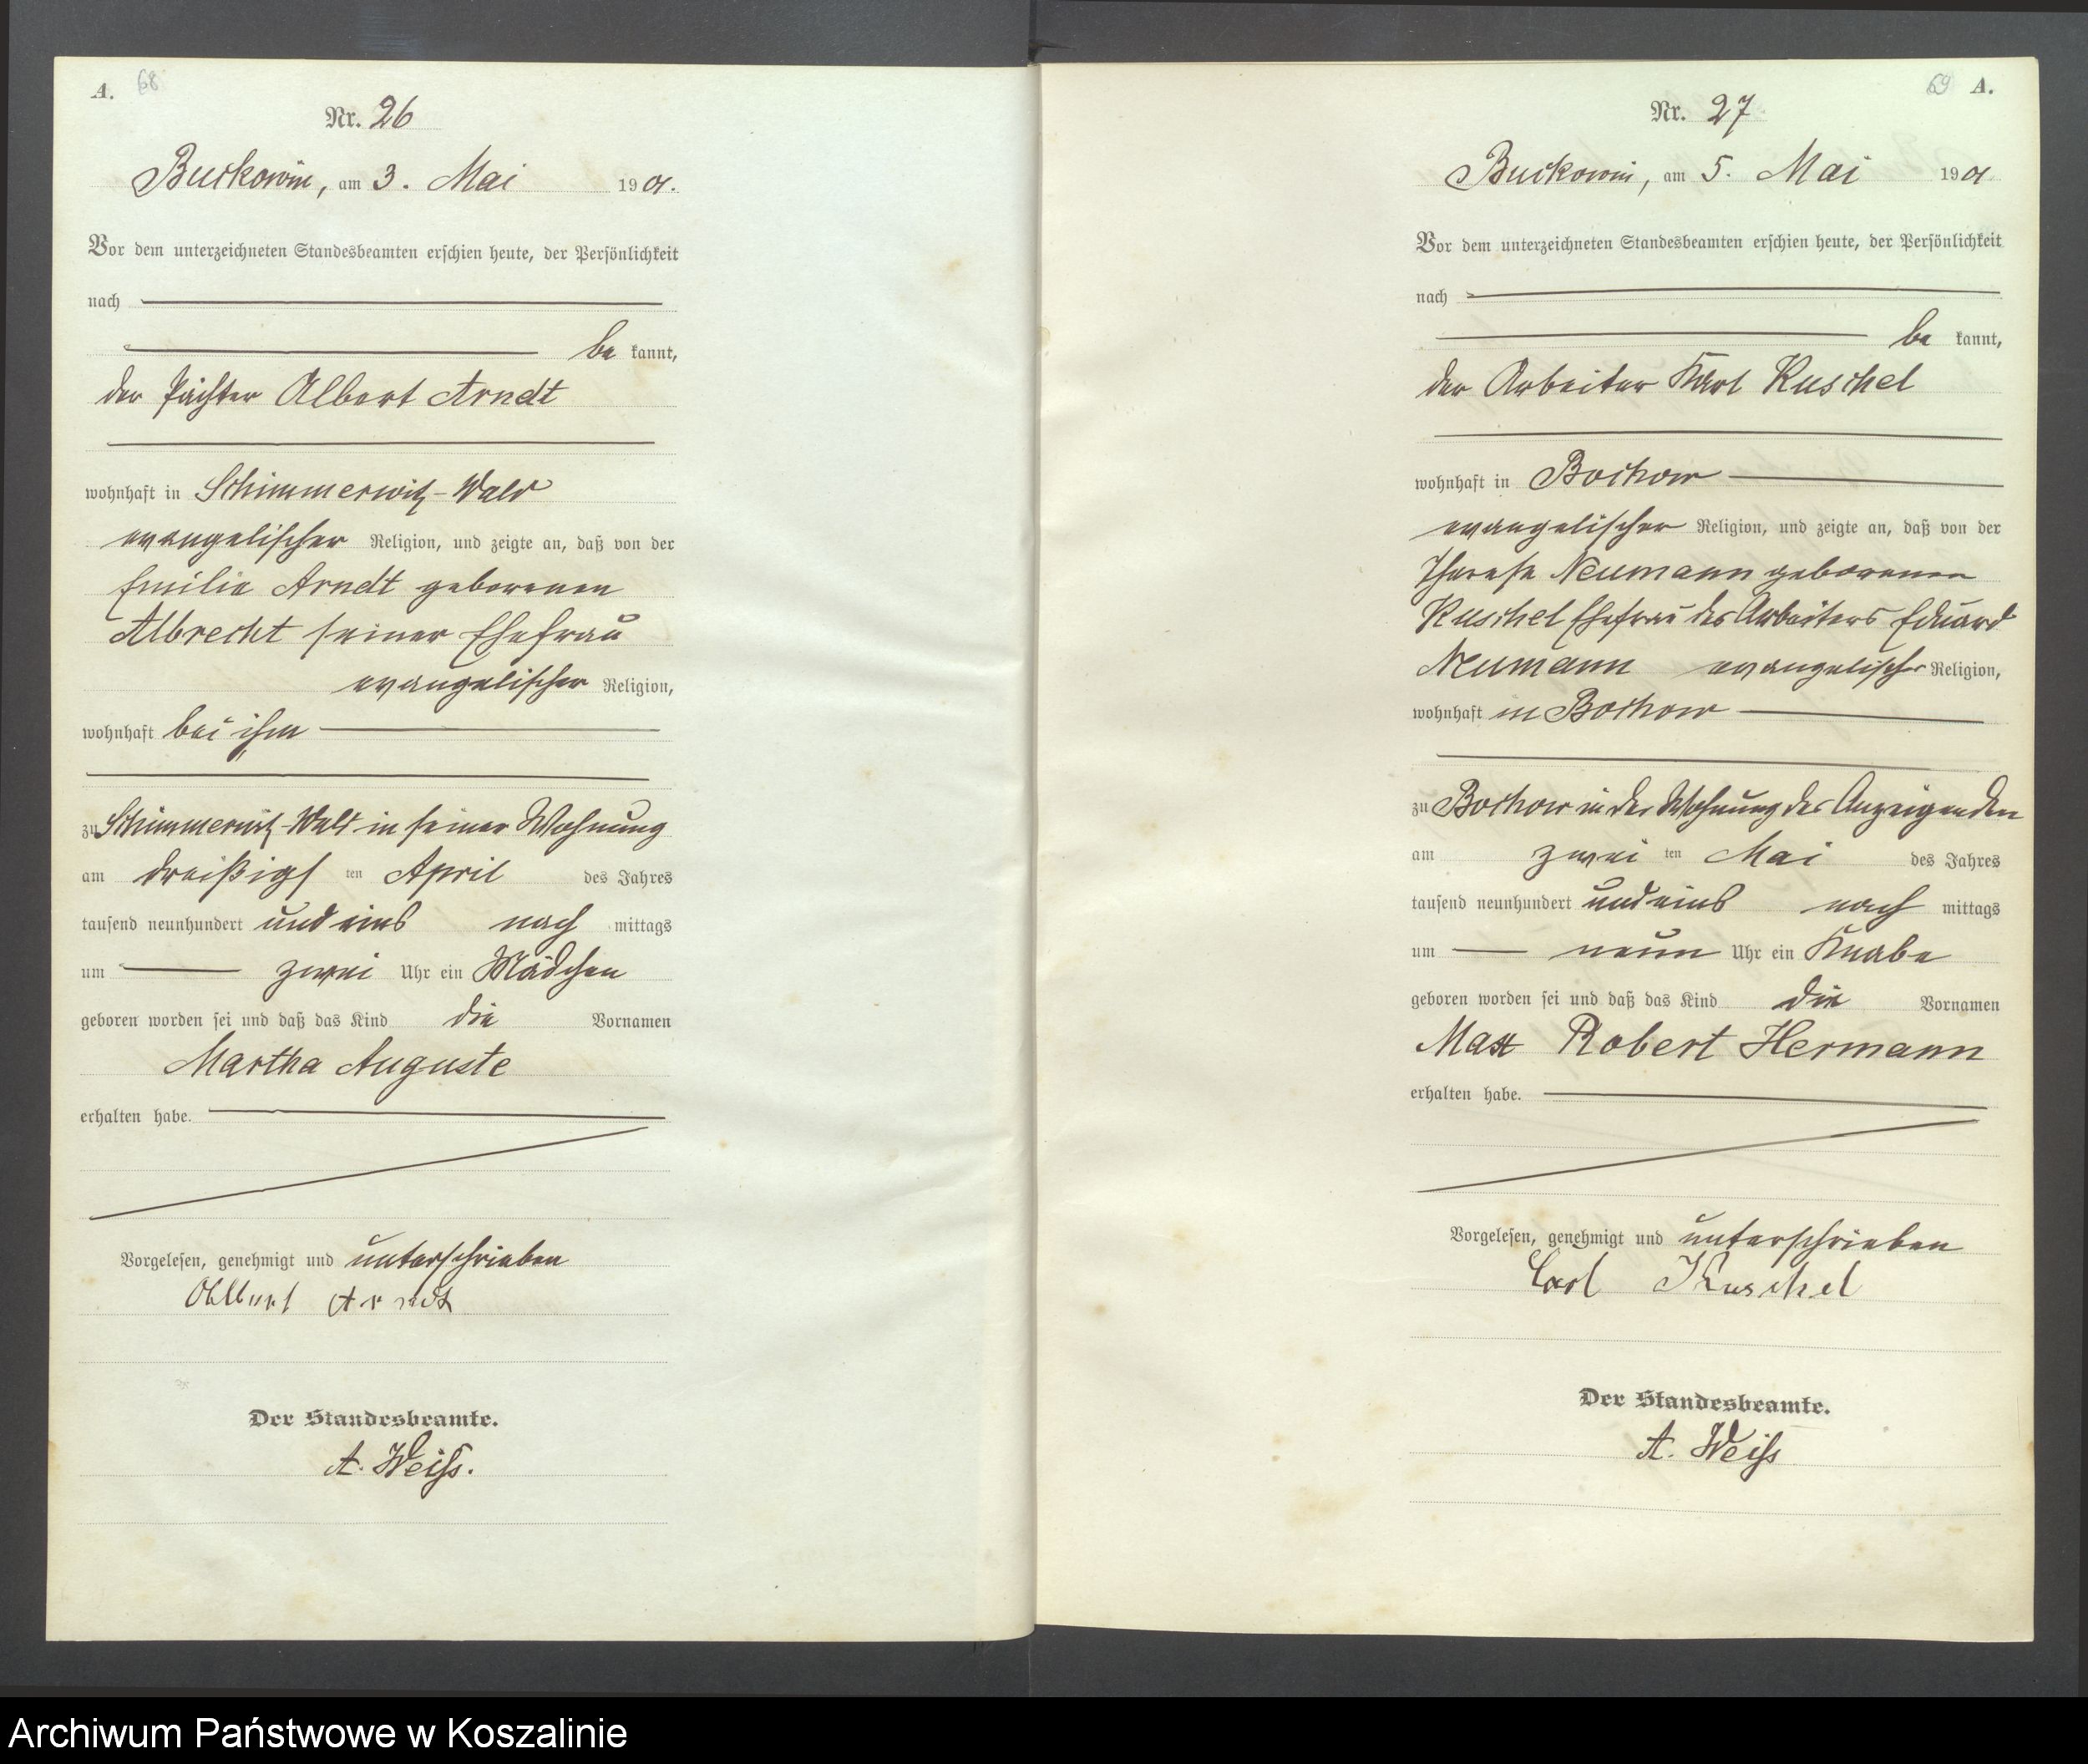 A. 68
Nr. 26
Buckowin, am 3. Mai 1901.
Vor dem unterzeichneten Standesbeamten erschien heute, der Persönlichkeit
nach
be kannt,
der Pächter Albert Arndt
wohnhaft in Schimmerwitz-Wald
evangelischer Religion, und zeigte an, daß von der
Emilie Arndt geborenen
Albrecht seiner Ehefrau
evangelischer Religion,
wohnhaft bei ihm
zu Schimmerwitz-Wald in seiner Wohnung
am dreißigs ten April des Jahres
tausend neunhundert und eins nach mittags
um zwei Uhr ein Mädchen
geboren worden sei und daß das Kind die Vornamen
Martha Auguste
erhalten habe.
Vorgelesen, genehmigt und unterschrieben
Albert Arndt
Der Standesbeamte.
A. Weiß.
69 A.
Nr. 27
Buckowin, am 5. Mai 1901
Vor dem unterzeichneten Standesbeamten erschien heute, der Persönlichkeit
nach
be kannt,
der Arbeiter Karl Kuschel
wohnhaft in Bochow
evangelischer Religion, und zeigte an, daß von der
Therese Neumann geborenen
Kuschel Ehefrau des Arbeiters Eduard
Neumann evangelischer Religion,
wohnhaft in Bochow
zu Bochow in der Wohnung des Anzeigenden
am zwei ten Mai des Jahres
tausend neunhundert und eins nach mittags
um neun Uhr ein Knabe
geboren worden sei und daß das Kind die Vornamen
Max Robert Hermann
erhalten habe.
Vorgelesen, genehmigt und unterschrieben
Carl Kuschel
Der Standesbeamte.
A. Weiß
Archiwum Państwowe w Koszalinie